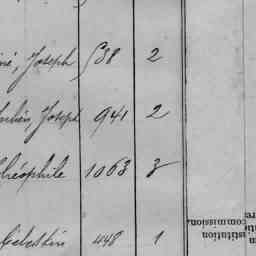 né, Joseph 538 2
Julien, Joseph 941 2
Théophile 1063 3
Célestin 448 1
re
tic
commission,
stitution
n